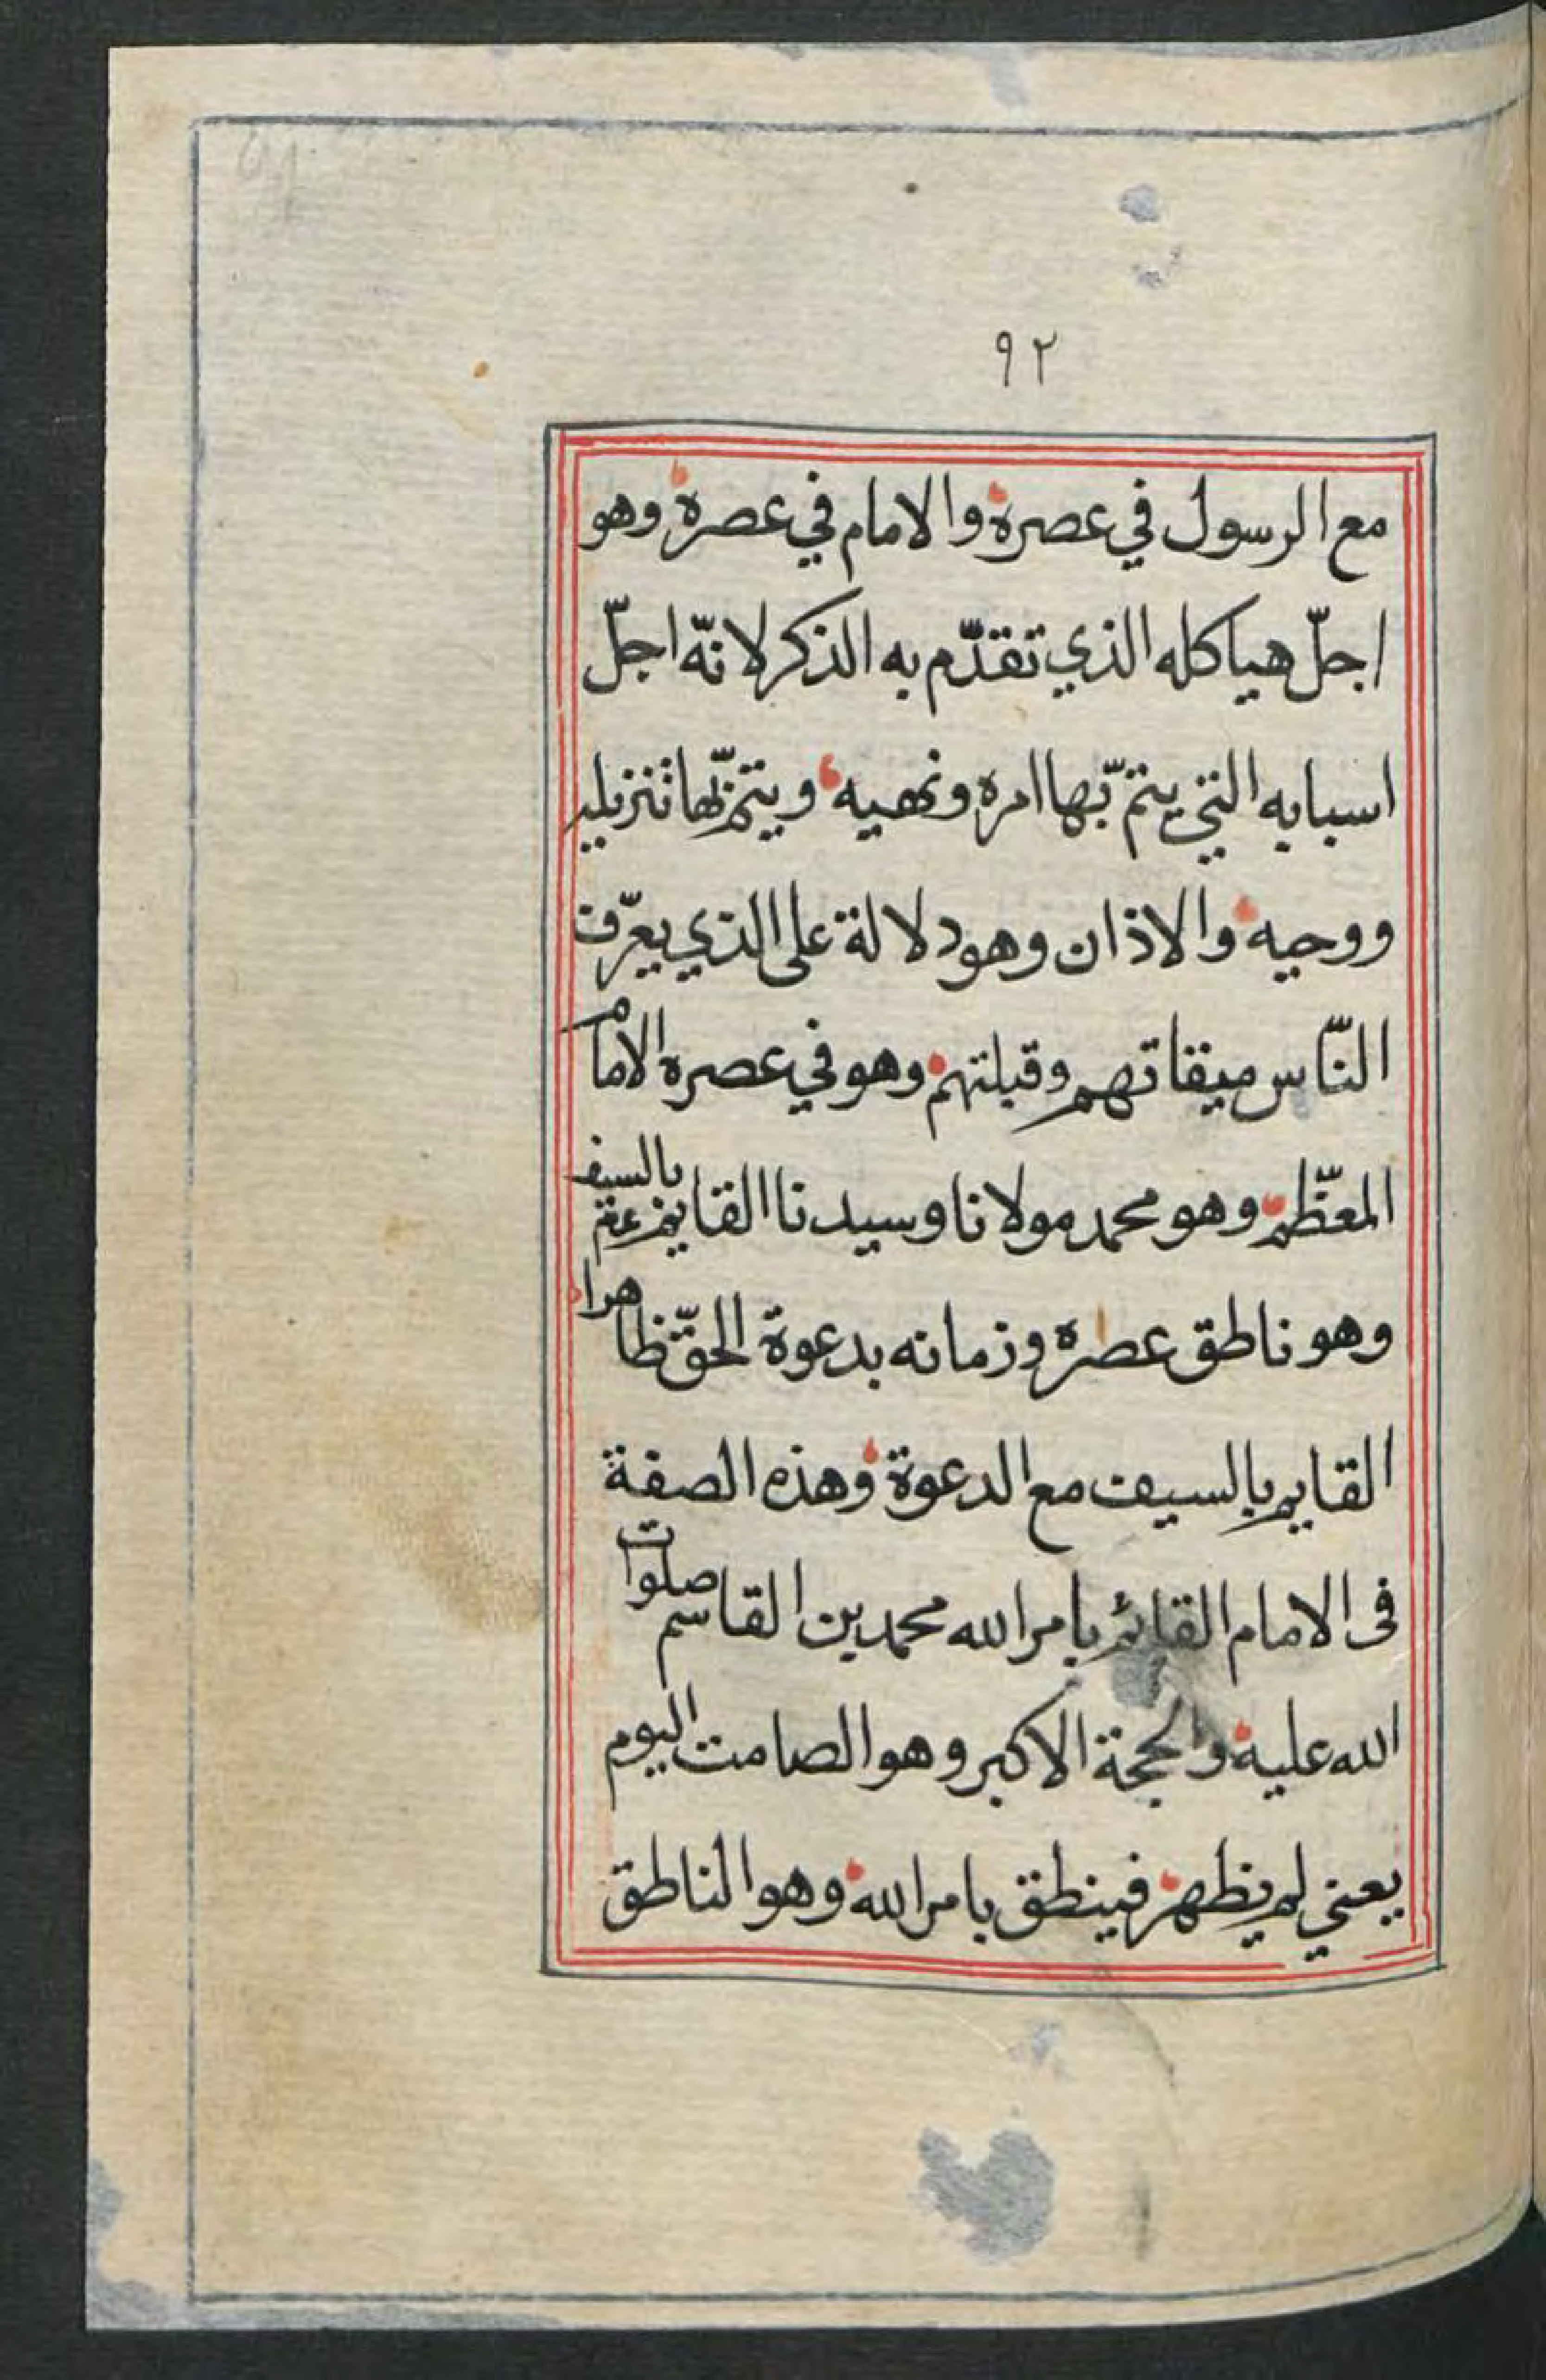 ٩٢
مع الرسول في عصره والامام في عصره وهو
اجلّ هياكله الذي تقدّم به الذكر لانّه اجلّ
اسبابه التي يتمّ بها امره ونهيه ويتم بها تنزيله
ووحيه والاذان وهو دلالة على الذي يعرّف
النّاس ميقاتهم وقبلتهم وهو في عصره الامام
المعظّم وهو محمد مولانا وسيدنا القايم بالسيف
وهو ناطق عصره وزمانه بدعوة الحقّ ظاهرا
القايم بالسيف مع الدعوة وهذه الصفة
فى الامام القائم بامر الله محمد بن القاسم صلوات
الله عليه والحجة الاكبر وهو الصامت اليوم
يعني لم يظهر فينطق بامر الله وهو الناطق